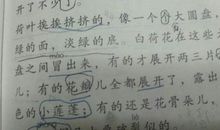 开了不少了。
荷叶挨挨挤挤的，像一个个大圆盘
绿的面，淡绿的底。白荷花在这些
盘之间冒出来，有的才展开两三片
有的花瓣儿全都展开了，露出
色的小莲蓬；有的还是花骨朵儿，